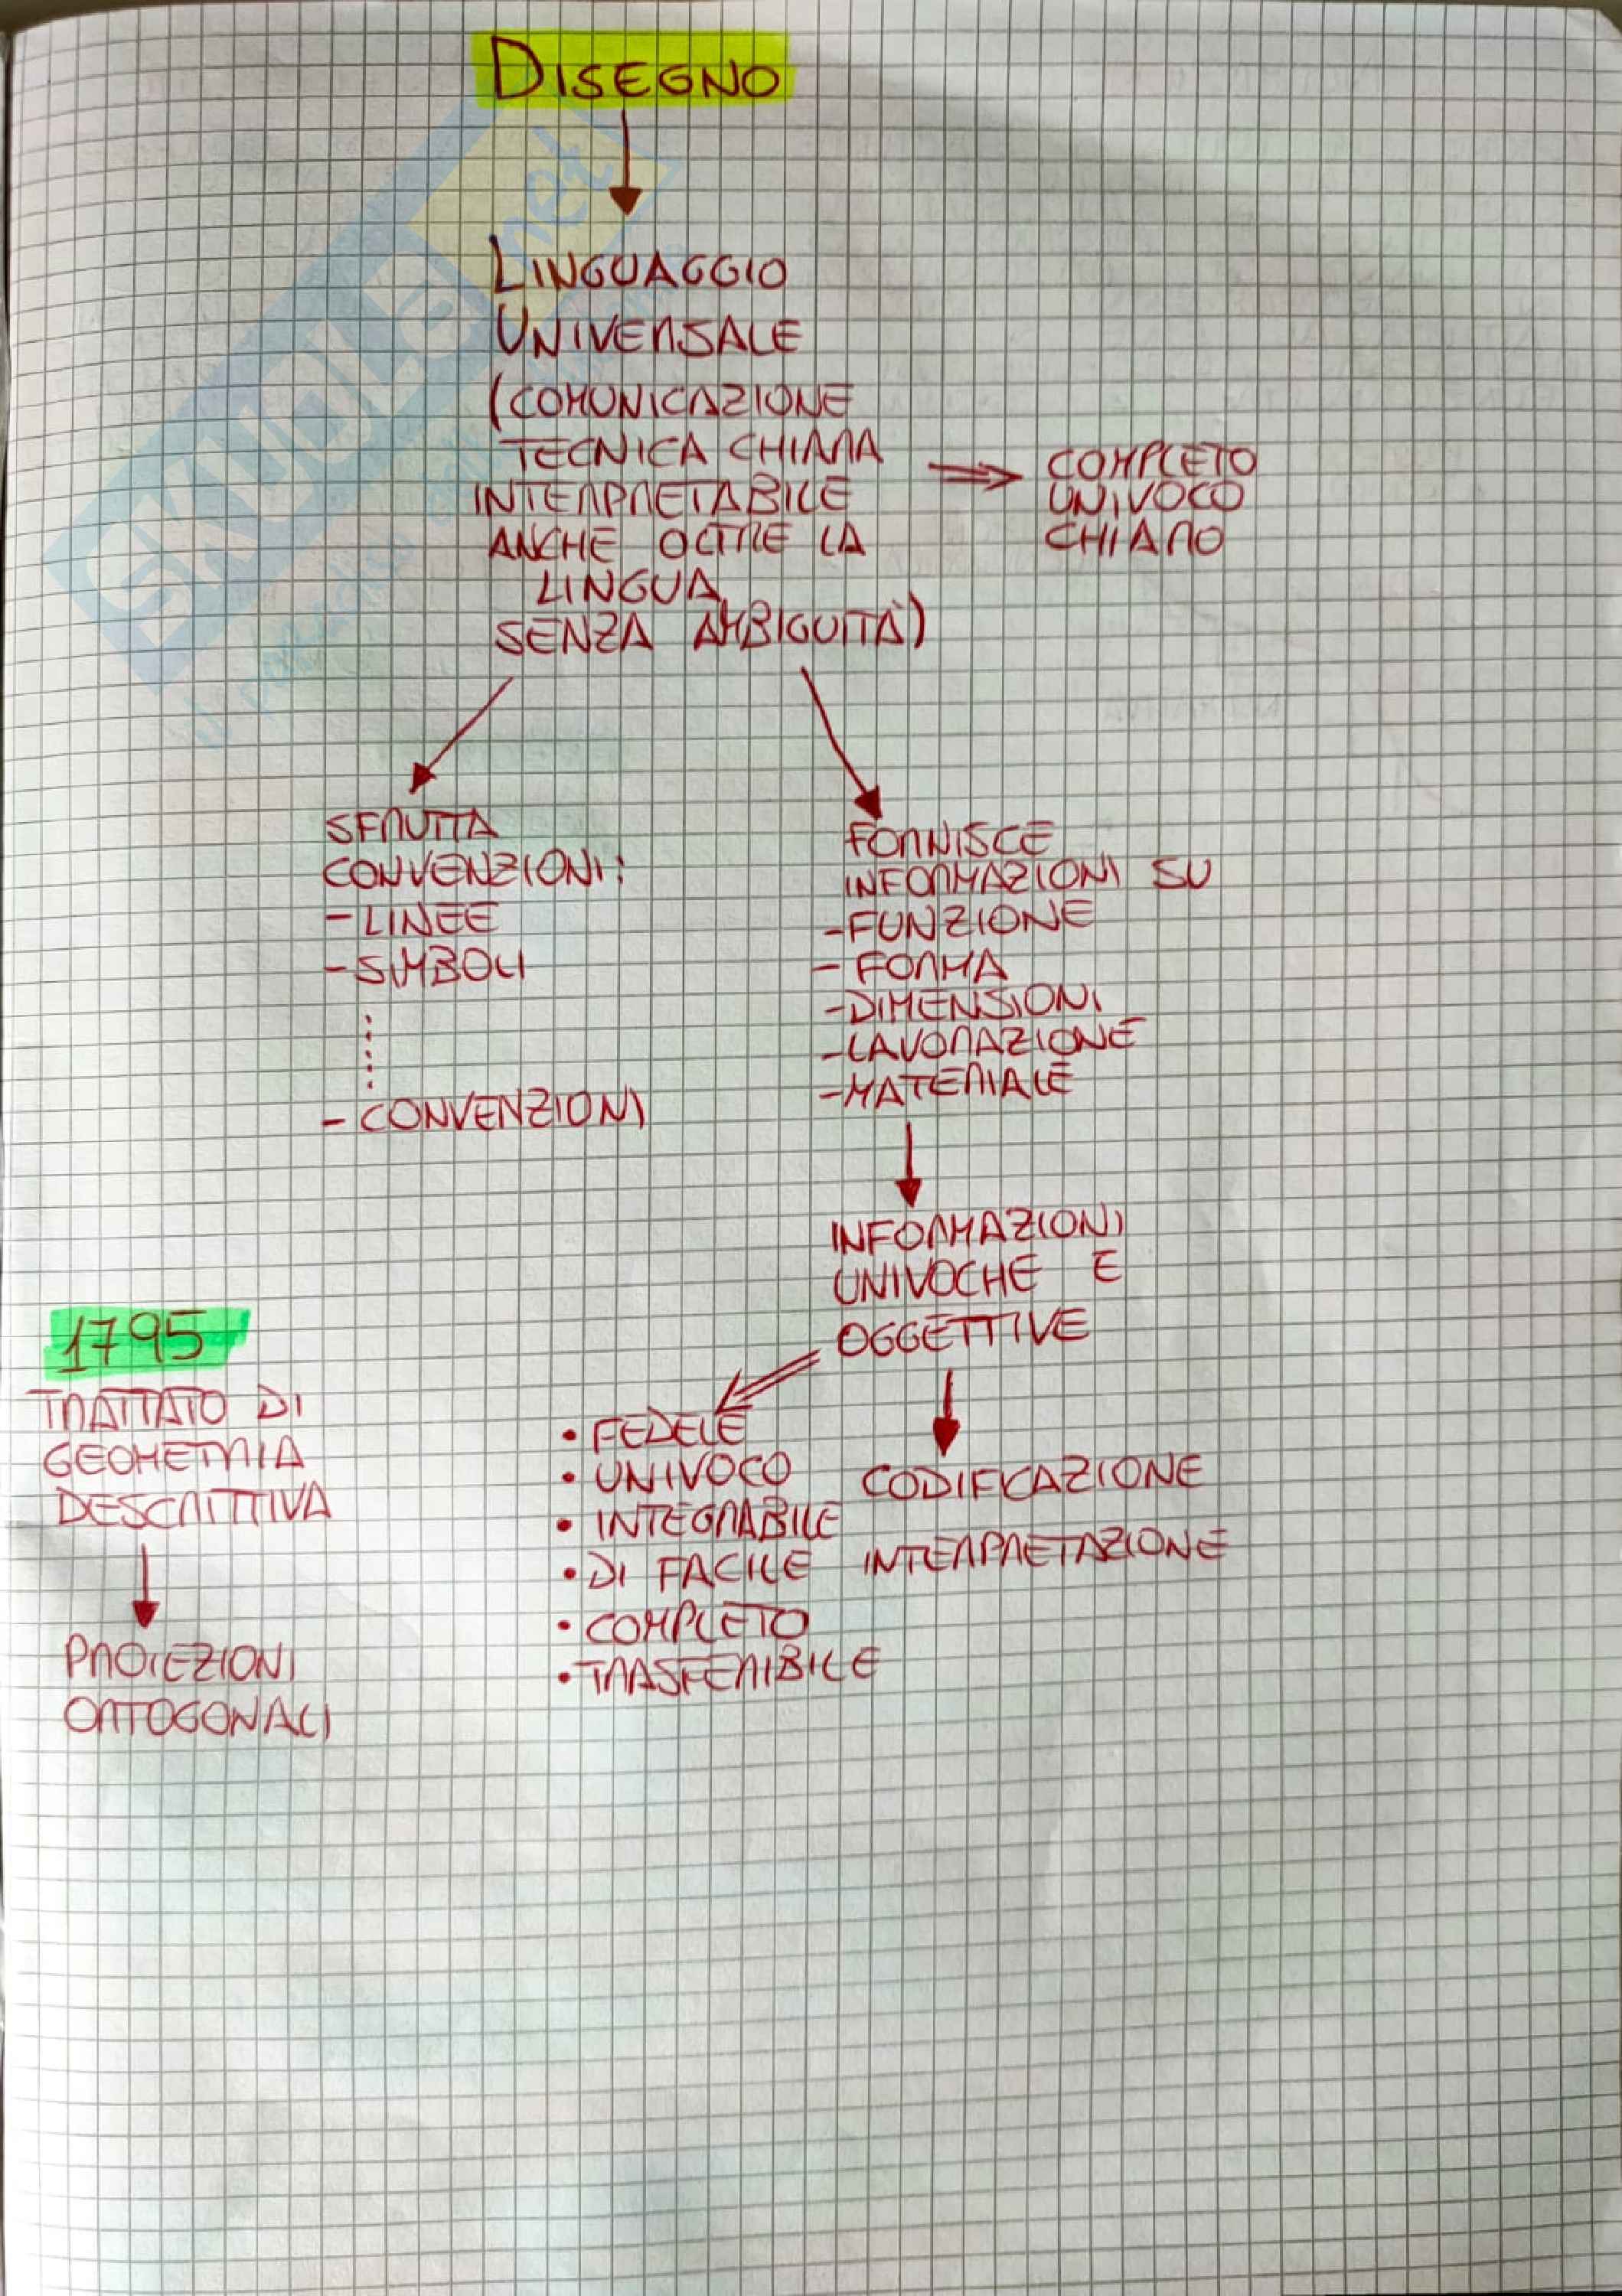 DISEGNO
LINGUAGGIO
UNIVERSALE
(COMUNICAZIONE
TECNICA CHIARA
INTERPRETABILE
ANCHE OLTRE LA
LINGUA
SENZA AMBIGUITÀ)
COMPLETO
UNIVOCO
CHIARO
SFRUTTA
CONVENZIONI:
- LINEE
- SIMBOLI
- CONVENZIONI
FORNISCE
INFORMAZIONI SU
- FUNZIONE
- FORMA
- DIMENSIONI
- LAVORAZIONE
- MATERIALE
INFORMAZIONI
UNIVOCHE E
OGGETTIVE
• FEDELE
• UNIVOCO
• INTEGRABILE
• DI FACILE INTERPRETAZIONE
• COMPLETO
• TRASFERIBILE
CODIFICAZIONE
1795
TRATTATO DI
GEOMETRIA
DESCRITTIVA
PROIEZIONI
ORTOGONALI
SKUOLA.net